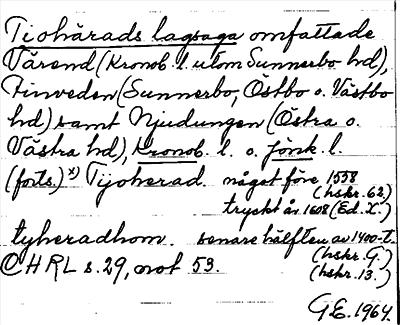 Tiohärads lagsaga omfattade
Värend (Kronob. l. utom Sunnerbo hd),
Finveden (Sunnerbo, Östbo o. Västbo
hd) samt Njudungen (Östra o.
Västra hd), Kronob. l. o. Jönk. l.
(forts.) x) Tijoherad. något före 1558
(hskr. 62.)
tryckt år 1608 (Ed. X.)
tyheradhom. senare hälften av 1400-t.
(hskr. G.)
CHRL s. 29, not 53. (hskr. 13.)
G.E. 1964.